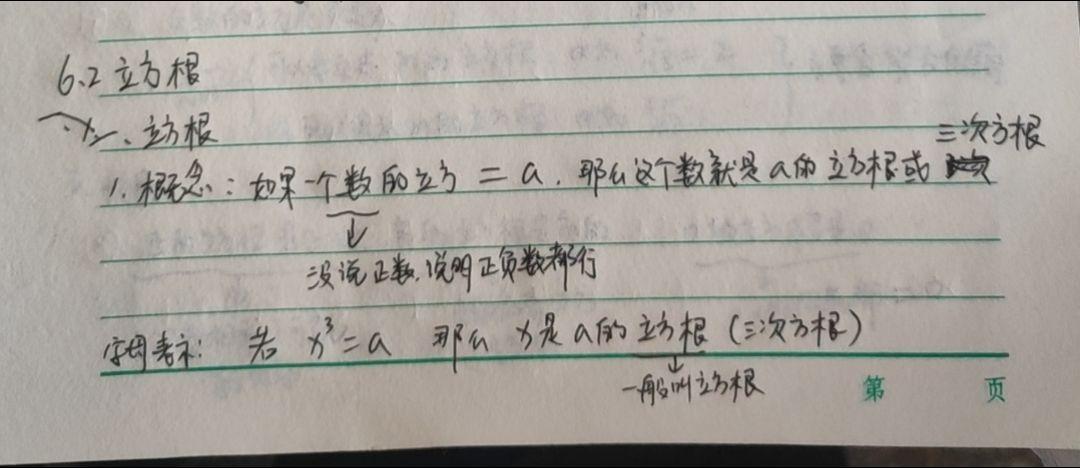 6.2 立方根
一、立方根
三次方根
1. 概念：如果一个数的立方 = a，那么这个数就是a的立方根或
没说正数，说明正负数都行
字母表示： 若 x³=a 那么 x是a的立方根（三次方根）
一般叫立方根
第 页